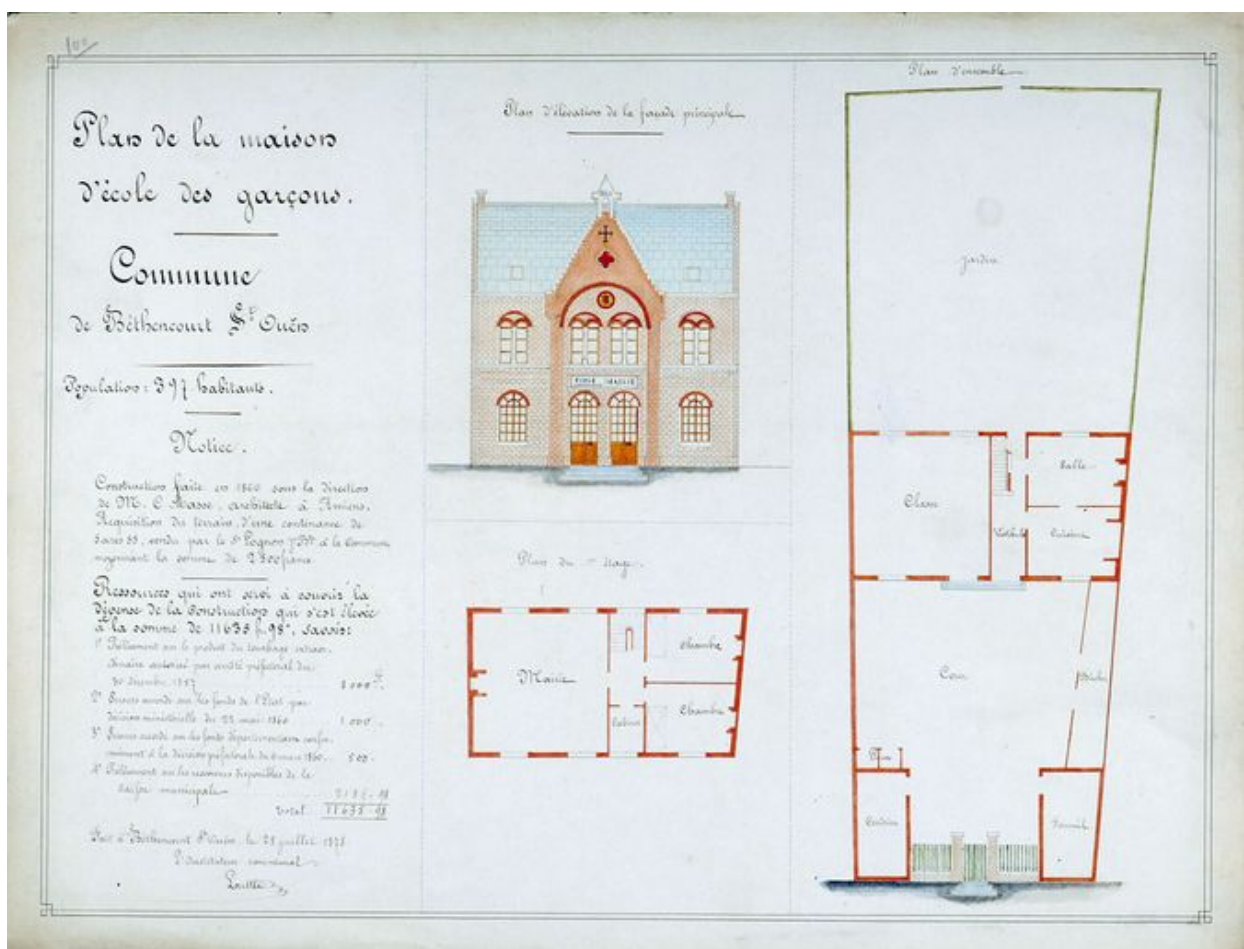 100
Plan de la maison
d'école des garçons.
Commune
de Béthencourt St Ouën
Population : 397 habitants.
Notice.
Construction faite en 1860 sous la direction
de M. C. Masse, architecte à Amiens.
du terrain d'une contenance de
vendu par le Sr à la Commune
moyennant la somme de 2300 francs
Ressources qui ont servi à couvrir la
dépense de la Construction qui s'est élevée
à la somme de 11635 f. 98c, savoir:
1° Prélèvement sur le produit du tourbage
autorisé par arrêté préfectoral du
30 décembre 1857
2° Secours accordé sur les fonds de l'État par
décision ministérielle du 22 mai 1860 1 000
3° Secours accordé sur les fonds départementaux
à la décision préfectorale du 1860. 500
4° Prélèvement sur les ressources disponibles de la
caisse municipale
Total 11635-98
Fait à Béthencourt St Ouën, le 28 juillet 1878
L'Instituteur communal
Plan d'élévation de la façade principale
ECOLE MAIRIE
Plan du 1er étage.
Mairie
Cabinet
Chambre
Chambre
Plan d'ensemble
Jardin
Classe
Vestibule
Salle
Cuisine
Cour
Bûcher
Fournil